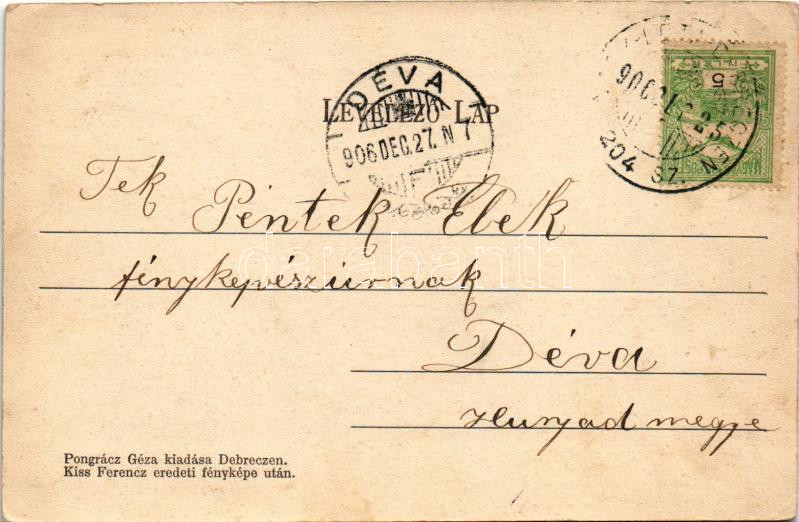 LEVELEZŐ LAP
DÉVA
906 DEC. 27. N 7
906 DEC 25
204 SZ.
5
Tek
Péntek Elek
fényképész urnak
Déva
Hunyad megye
Pongrácz Géza kiadása Debreczen.
Kiss Ferencz eredeti fényképe után.
darabanth